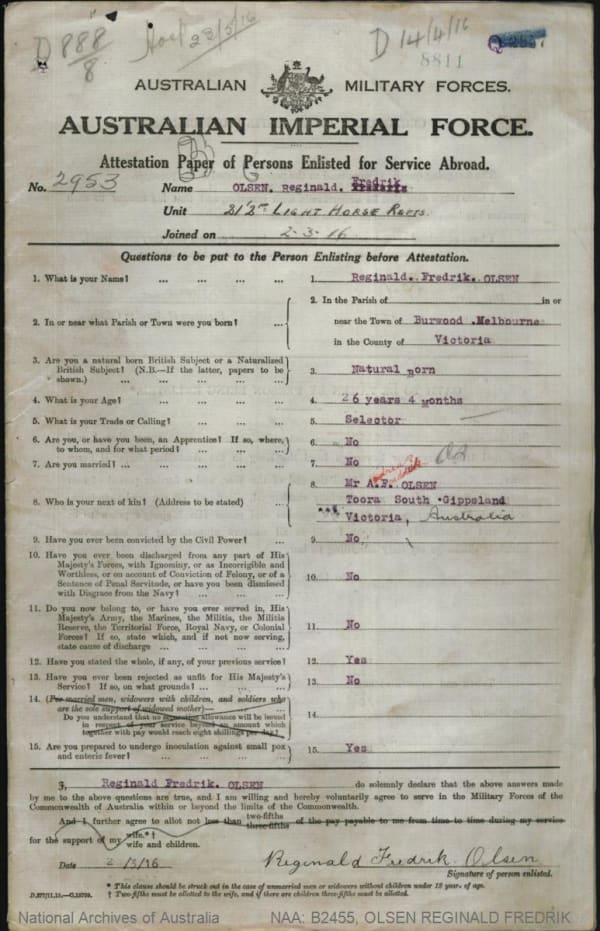 D 888/8 23/3/16 D 14/4/16
8811
AUSTRALIAN MILITARY FORCES.
AUSTRALIAN IMPERIAL FORCE.
Attestation Paper of Persons Enlisted for Service Abroad.
No. 2953 Name OLSEN. Reginald. Fredrik
Unit 21/2nd LIGHT HORSE Rgts.
Joined on 2-3-16
Questions to be put to the Person Enlisting before Attestation.
1. What is your Name? ... ... ... ... 1. Reginald. Fredrik. OLSEN
2. In or near what Parish or Town were you born? ... 2. In the Parish of in or
near the Town of Burwood .Melbourne
in the County of Victoria
3. Are you a natural born British Subject or a Naturalized
British Subject? (N.B.—If the latter, papers to be
shown.) ... ... ... ... 3. Natural Born
4. What is your Age? ... ... ... ... 4. 26 years 4 months
5. What is your Trade or Calling? ... ... ... 5. Selector
6. Are you, or have you been, an Apprentice? If so, where,
to whom, and for what period? ... ... ... 6. No
7. Are you married? ... ... ... ... 7. No
8. Who is your next of kin? (Address to be stated) ... 8. Mr A.F. OLSEN
Toora South .Gippsland
Victoria, Australia
9. Have you ever been convicted by the Civil Power? ... 9. No
10. Have you ever been discharged from any part of His
Majesty's Forces, with Ignominy, or as Incorrigible and
Worthless, or on account of Conviction of Felony, or of a
Sentence of Penal Servitude, or have you been dismissed
with Disgrace from the Navy? ... ... ... 10. No
11. Do you now belong to, or have you ever served in, His
Majesty's Army, the Marines, the Militia, the Militia
Reserve, the Territorial Force, Royal Navy, or Colonial
Forces? If so, state which, and if not now serving,
state cause of discharge ... ... ... 11. No
12. Have you stated the whole, if any, of your previous service? 12. Yes
13. Have you ever been rejected as unfit for His Majesty's
Service? If so, on what grounds? ... ... 13. No
14. (For married men, widowers with children, and soldiers who
are the sole support of widowed mother)—
Do you understand that no separation allowance will be issued
in respect of your service beyond an amount which
together with pay would reach eight shillings per day? 14.
15. Are you prepared to undergo inoculation against small pox
and enteric fever? ... ... ... ... 15. Yes
I, Reginald Fredrik. OLSEN do solemnly declare that the above answers made
by me to the above questions are true, and I am willing and hereby voluntarily agree to serve in the Military Forces of the
Commonwealth of Australia within or beyond the limits of the Commonwealth.
And I further agree to allot not less than two-fifths three-fifths of the pay payable to me from time to time during my service
for the support of my wife.*† wife and children.
Date 2/3/16 Reginald Fredrik. Olsen
Signature of person enlisted.
* This clause should be struck out in the case of unmarried men or widowers without children under 18 year. of age.
† Two-fifths must be allotted to the wife, and if there are children three-fifths must be allotted.
National Archives of Australia NAA: B2455, OLSEN REGINALD FREDRIK